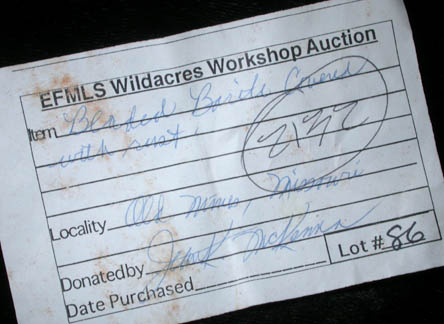 EFMLS Wildacres Workshop Auction
Item Bladed Barite Covered
with rust
Locality Old Mines, Missouri
Donated by
Date Purchased
Lot # 86